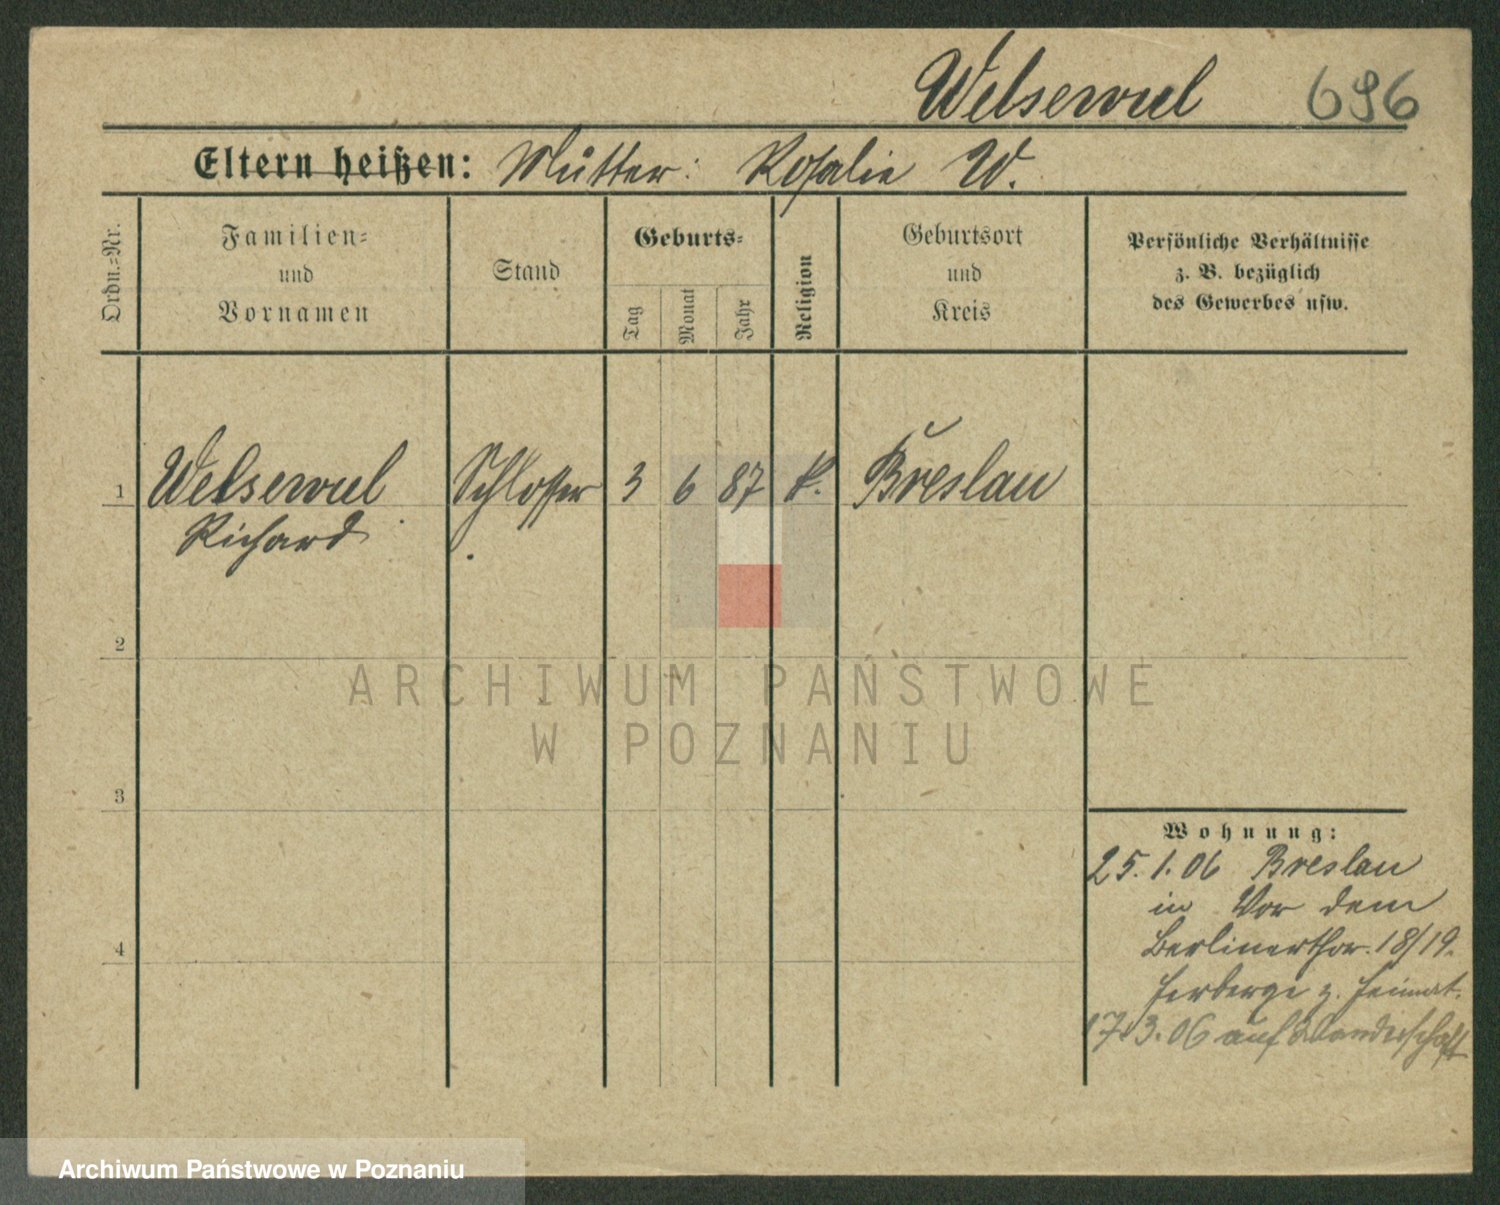 Welsewul 696
Eltern heißen: Mutter: Rosalie W.
Ordn.-Nr.
Familien-
und
Vornamen
Stand
Geburts-
Tag
Monat
Jahr
Religion
Geburtsort
und
Kreis
Persönliche Verhältnisse
z. B. bezüglich
des Gewerbes usw.
1 Welsewul Schlosser 3 6 87 k. Breslau
Richard
2
ARCHIWUM PAŃSTWOWE
W POZNANIU
3
Wohnung:
25. 1. 06 Breslau
in Vor dem
Berlinerthor. 18/19.
4
Herberge z. Heimat.
17. 3. 06 auf Wanderschaft
Archiwum Państwowe w Poznaniu